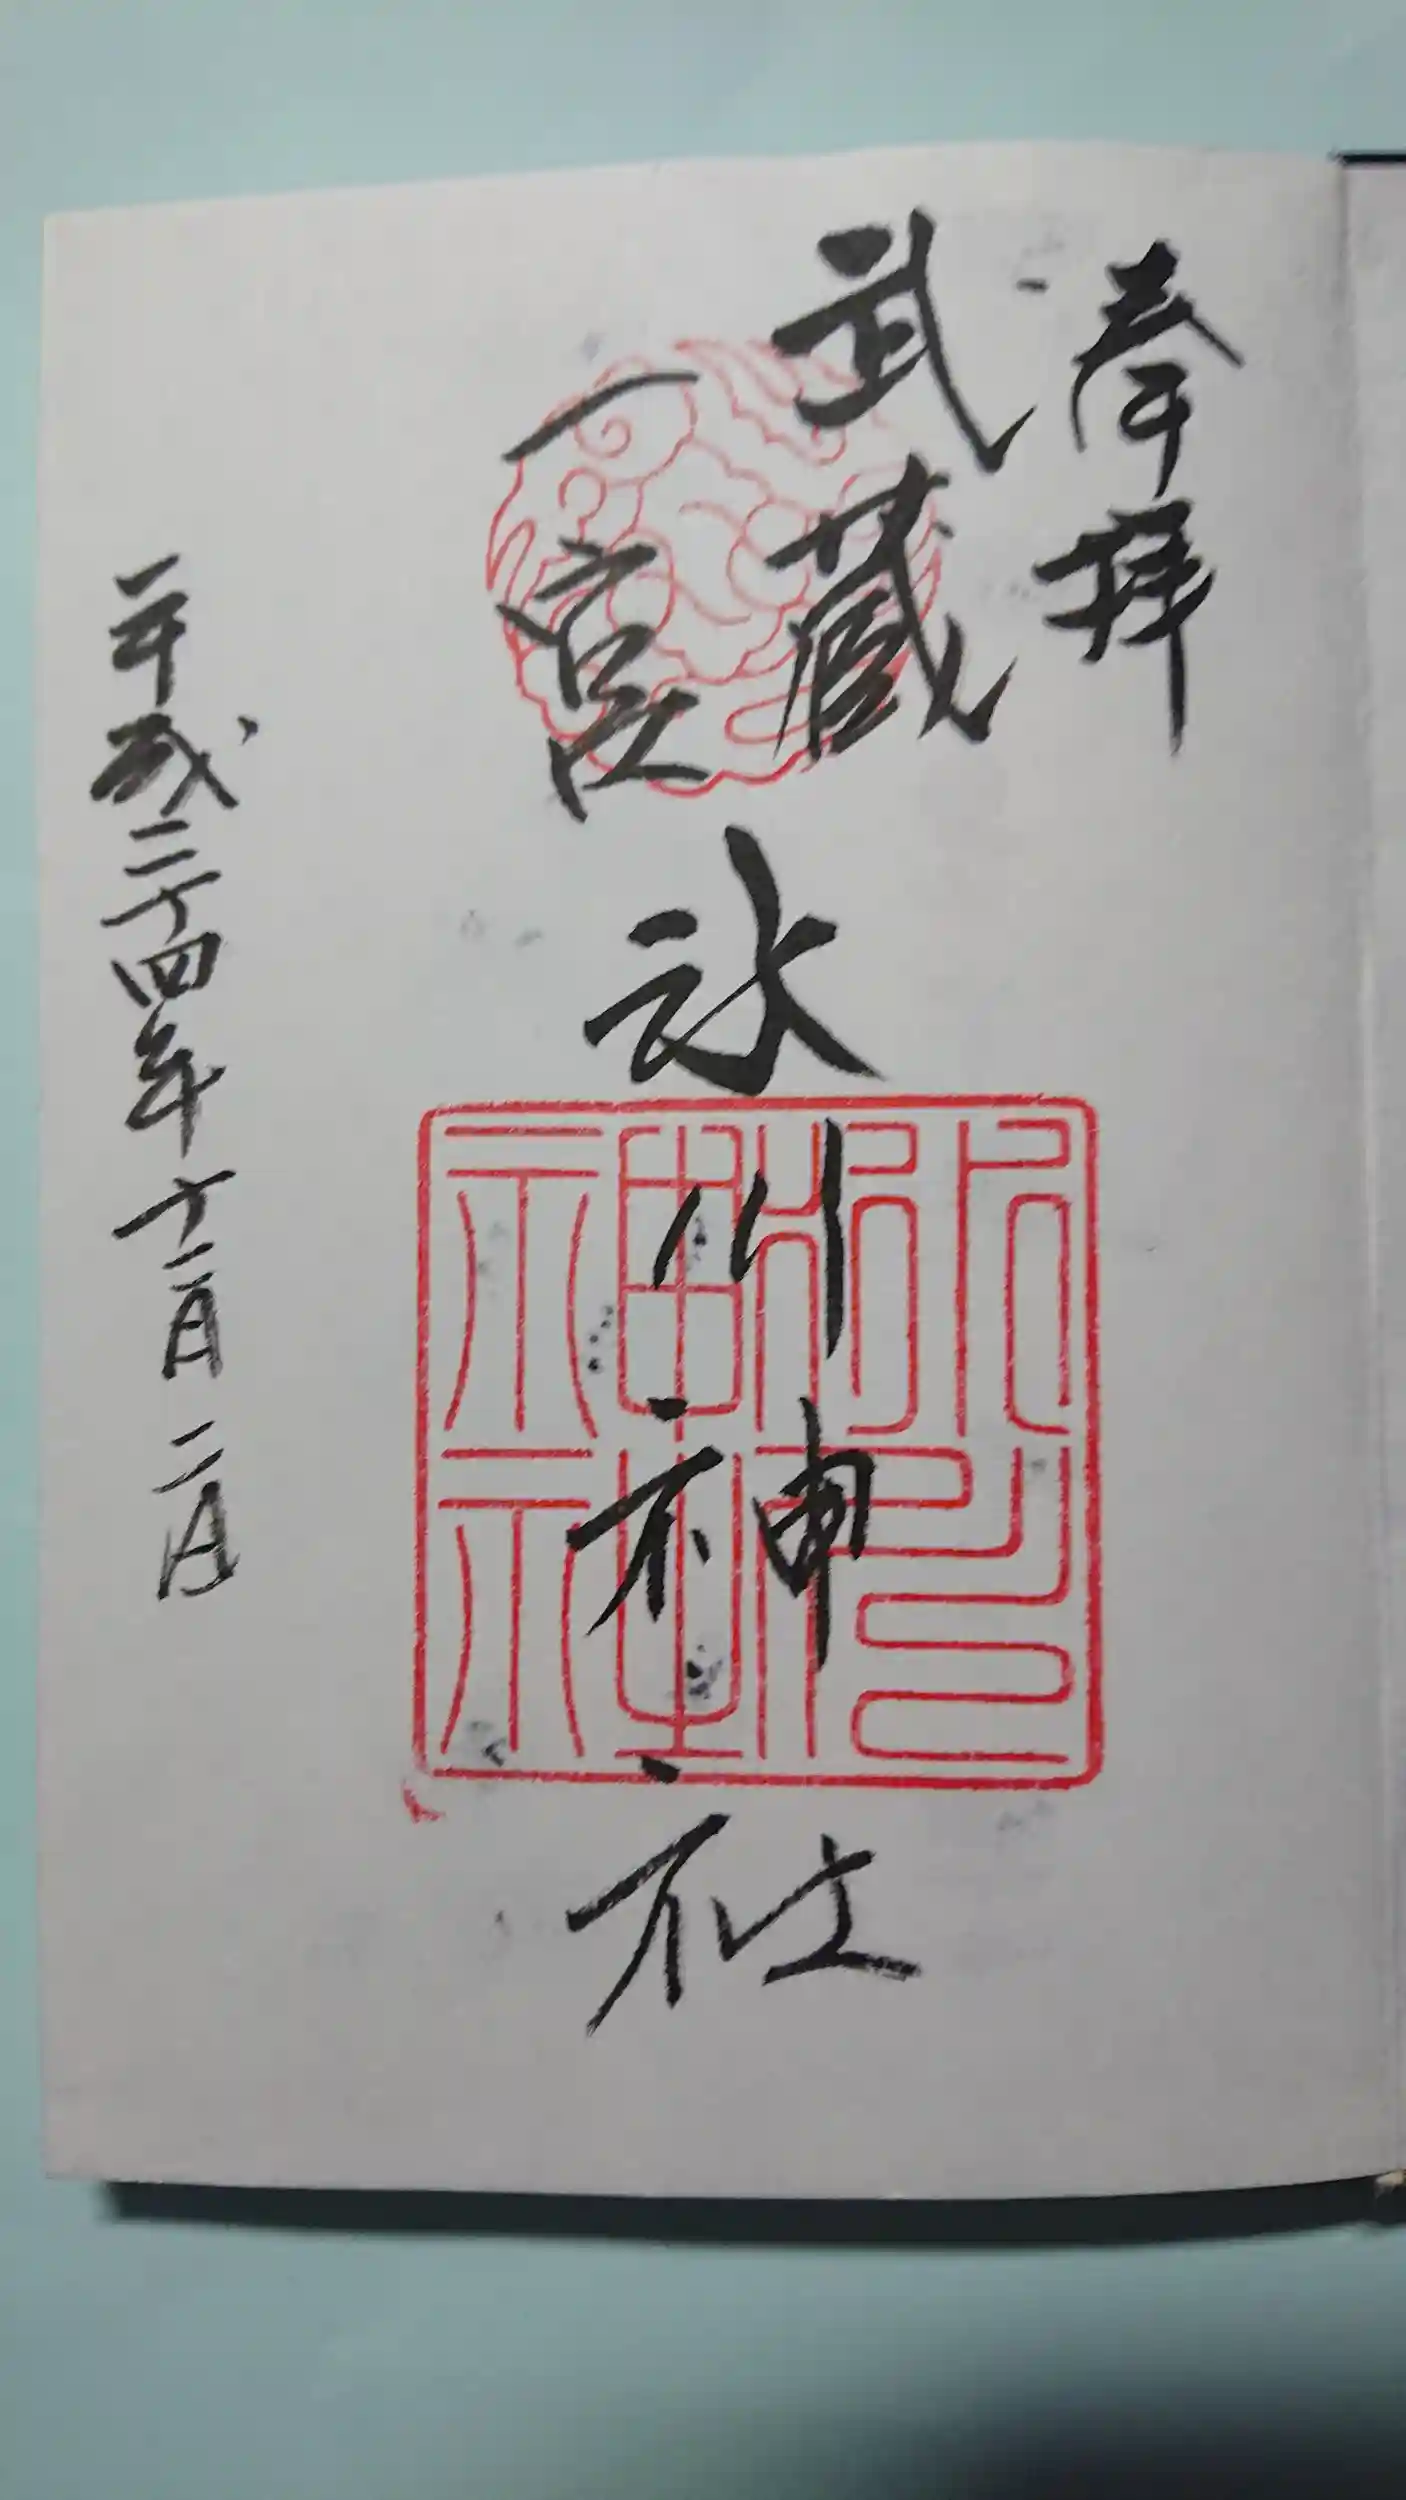 奉拝
武蔵
一宮
氷川神社
平成二十四年十二月二日
氷川
神社